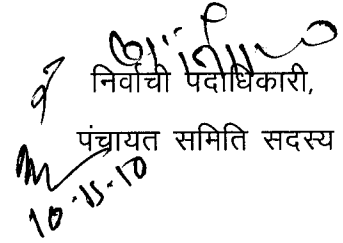 निर्वाची पदाधिकारी,
पंचायत समिति सदस्य
10-11-10